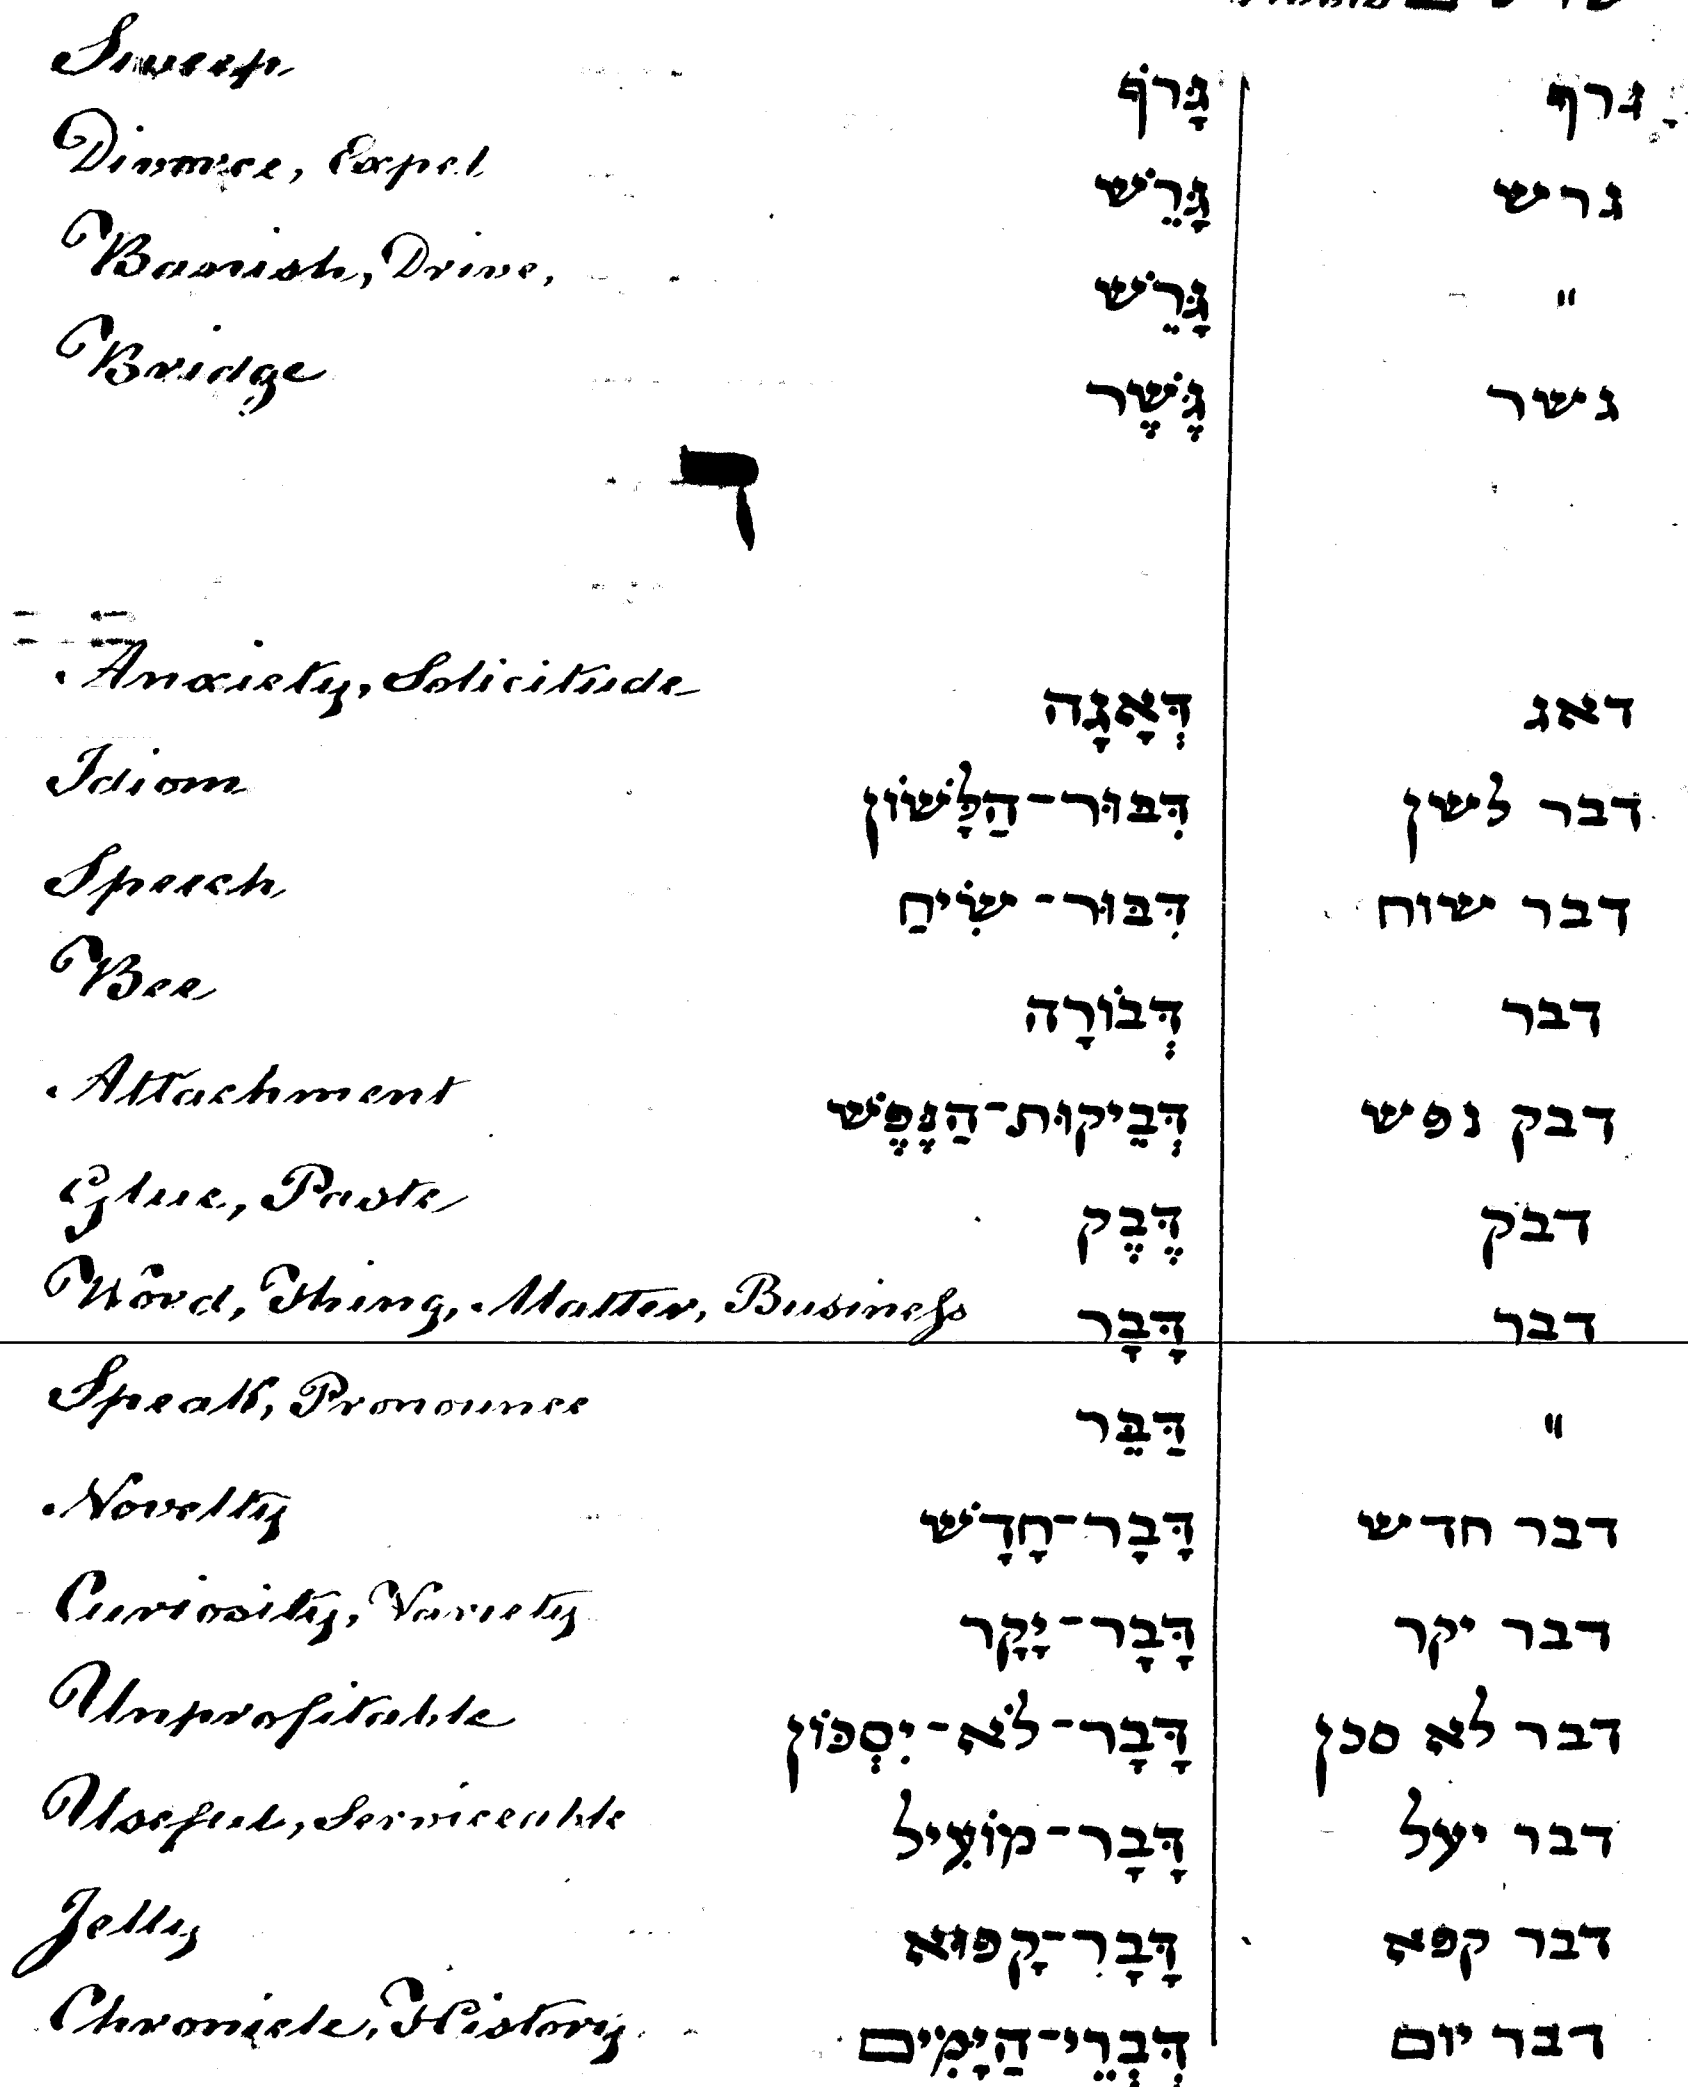 Sweep גָּרֹף גרף
Divorce, Expel גָּרֵשׁ גרש
Banish, Drive, גָּרֵשׁ "
Bridge גֶּשֶׁר גשר
ד
Anxiety, Solicitude דְּאָגָה דאג
Idiom דִּבּוּר-הַלָּשׁוֹן דבר לשן
Speech דִּבּוּר-שִׂיחַ דבר שוח
Bee דְּבוֹרָה דבר
Attachment דְּבֵיקוּת-הַנֶּפֶשׁ דבק נפש
Glue, Paste דֶּבֶק דבק
Word, Thing, Matter, Business דָּבָר דבר
Speak, Pronounce דַּבֵּר "
Novelty דָּבָר-חָדָשׁ דבר חדש
Curiosity, Variety דָּבָר-יָקָר דבר יקר
Unprofitable דָּבָר-לֹא-יִסְכּוֹן דבר לא סכן
Useful, Serviceable דָּבָר-מוֹעִיל דבר יעל
Jelly דָּבָר-קָפוּא דבר קפא
Chronicle, History דִּבְרֵי-הַיָּמִים דבר יום